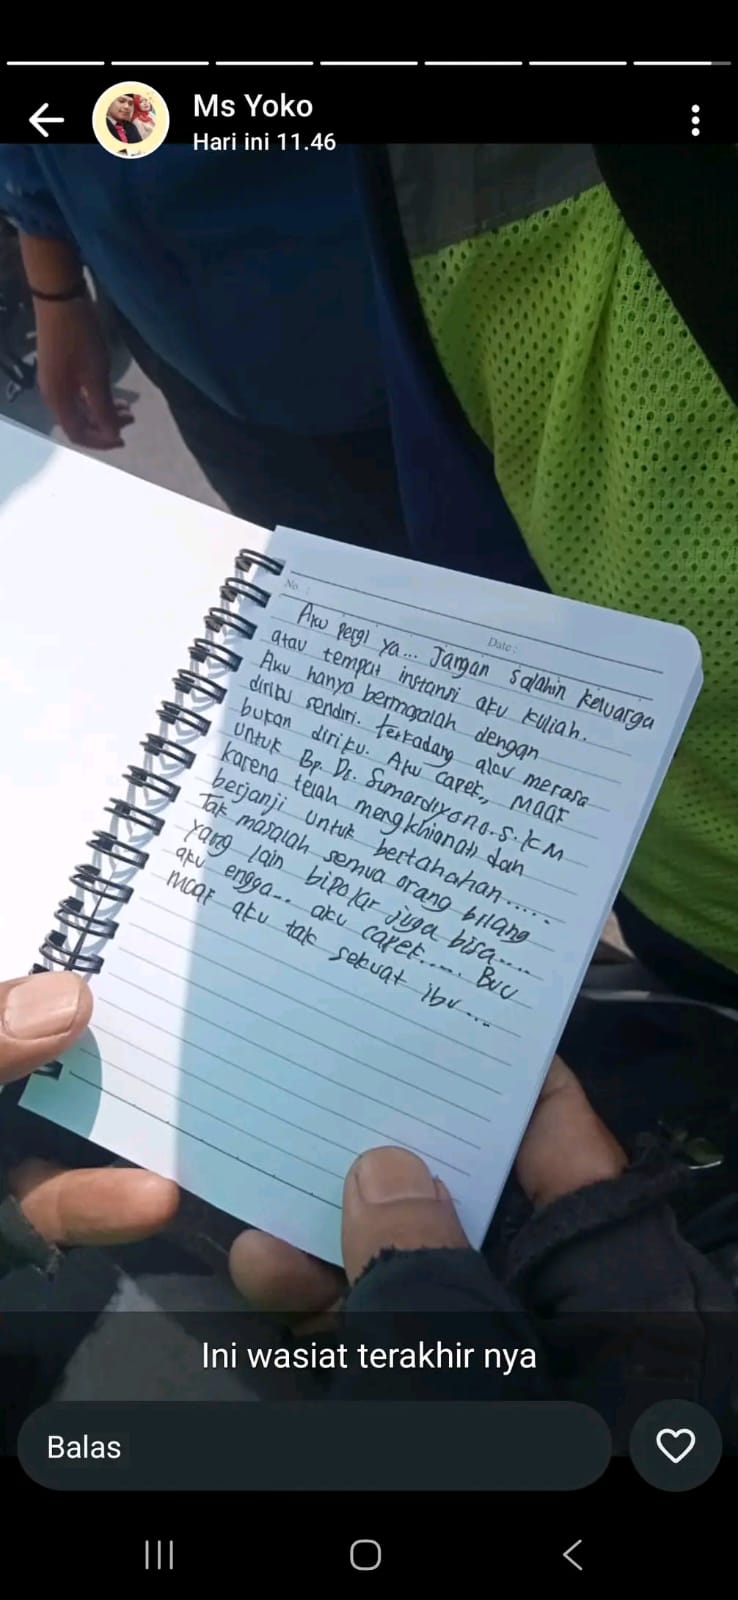 Ms Yoko
Hari ini 11.46
No :
Date :
Aku pergi ya... Jangan salahin keluarga
atau tempat instansi aku kuliah.
Aku hanya bermasalah dengan
diriku sendiri. Terkadang alau merasa
bukan diriku. Aku capek,, maaf
untuk Bp. Dr. Sumardiyono.S.KM
karena telah mengkhianati dan
berjanji untuk bertahahan.....
Tak masalah semua orang bilang
yang lain bipolar juga bisa....
aku engga.. aku capek..... Buu
maaf aku tak sekuat ibu...
Ini wasiat terakhir nya
Balas